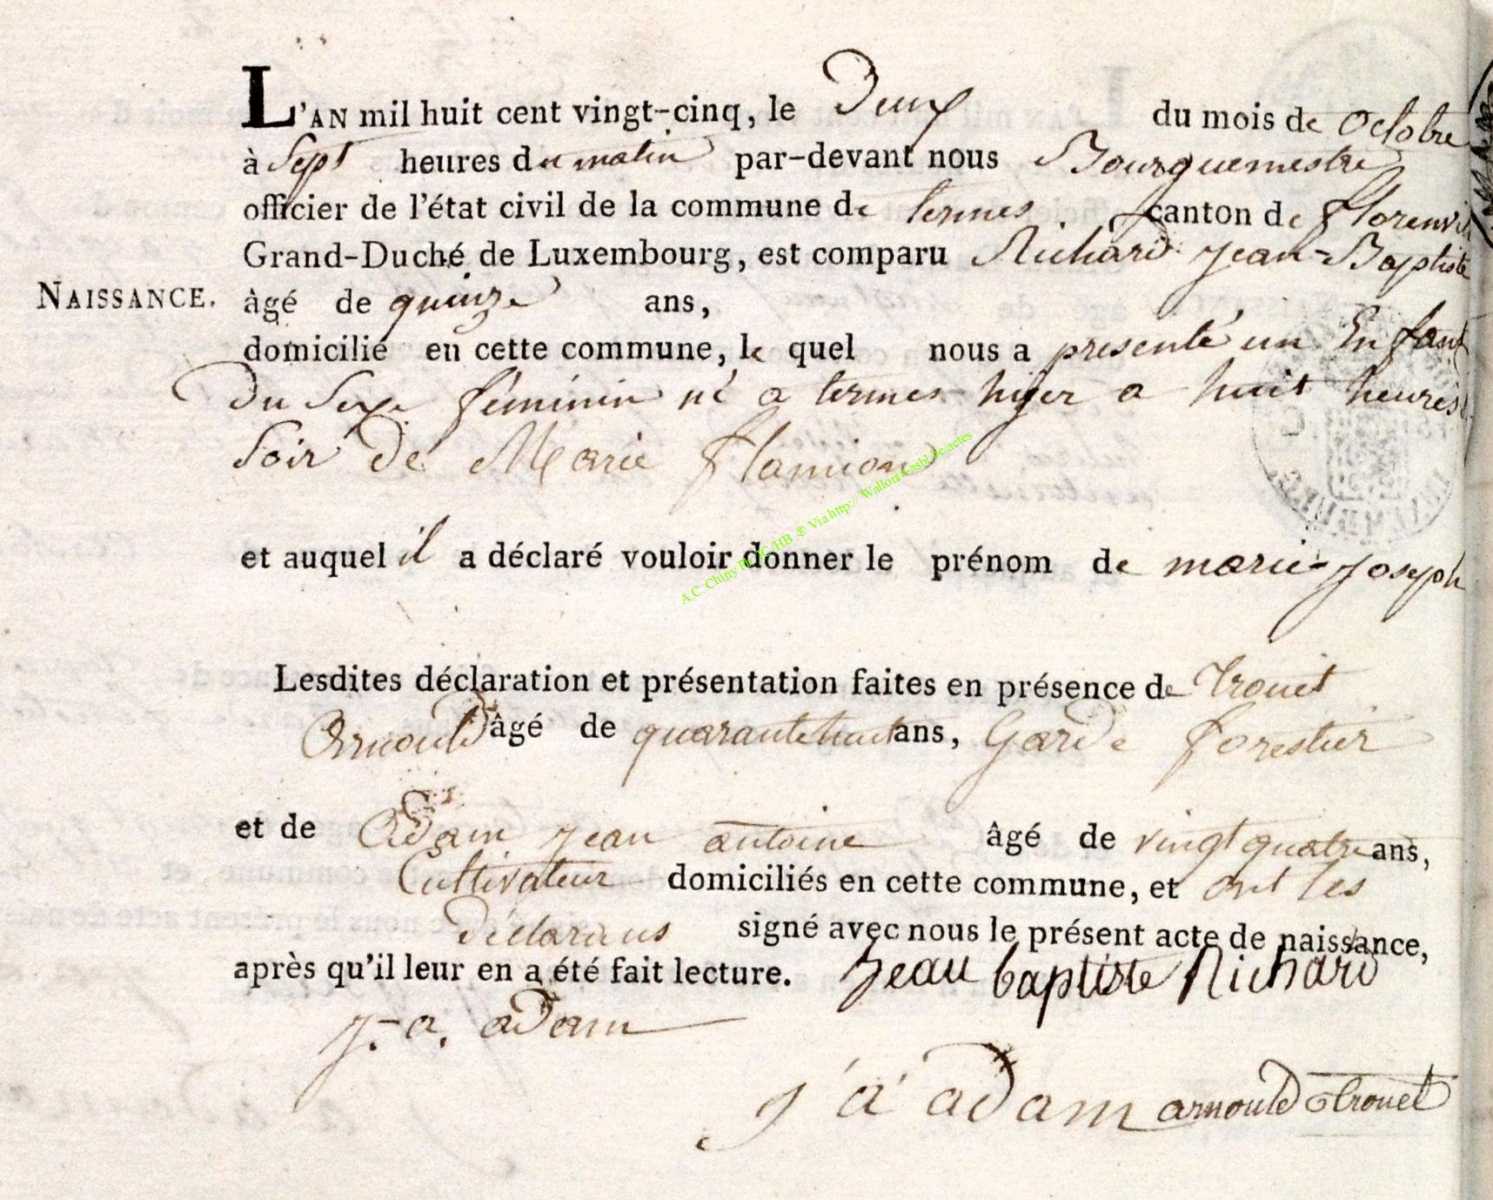 L'AN mil huit cent vingt-cinq, le Deux du mois de octobre
à Sept heures du matin par-devant nous Bourguemestre
officier de l'état civil de la commune de termes canton de florenvil
Grand-Duché de Luxembourg, est comparu Richard Jean-Baptiste
NAISSANCE. âgé de quinze ans,
domicilié en cette commune, le quel nous a presenté un Enfant
Du Sexe féminin né a termes hyer a huit heures
Soir de Marie flamion
et auquel il a déclaré vouloir donner le prénom de marie-Joseph
Lesdites déclaration et présentation faites en présence de Trouet
Arnould âgé de quarante huit ans, Garde forestier
et de Adam Jean antoine âgé de vingt quatre ans,
Cultivateur domiciliés en cette commune, et ont les
Déclarans signé avec nous le présent acte de naissance,
après qu'il leur en a été fait lecture. Jean baptiste Richard
J. a. adam
J a adam arnould trouet
A.C. Chiny Via http: